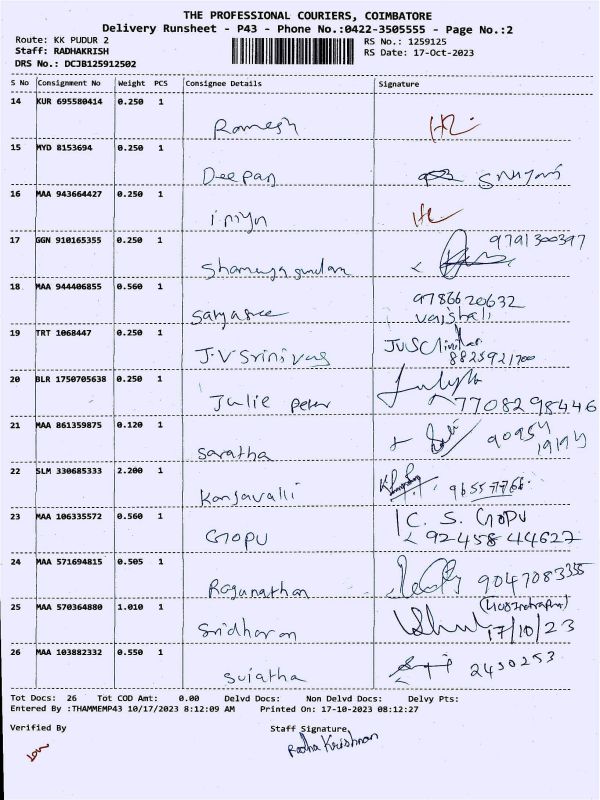 THE PROFESSIONAL COURIERS, COIMBATORE
Delivery Runsheet - P43 - Phone No.:0422-3505555 - Page No.:2
Route: KK PUDUR 2
RS No.: 1259125
Staff: RADHAKRISH
RS Date: 17-Oct-2023
DRS No.: DCJB125912502
S No Consignment No Weight PCS Consignee Details Signature
14 KUR 695580414 0.250 1
Ramesh
15 MYD 8153694 0.250 1
Deepan
16 MAA 943664427 0.250 1
17 GGN 910165355 0.250 1
9791300397
18 MAA 944406855 0.560 1
9786620632
Sathyasree Vaishali
19 TRT 1068447 0.250 1
J.V Srinivas
8825921700
20 BLR 1750705638 0.250 1
Julie Peter
7708298446
21 MAA 861359875 0.120 1
Saratha 90954
19194
22 SLM 330685333 2.200 1
23 MAA 106335572 0.560 1
Gopu C. S. Gopu
92458 44627
24 MAA 571694815 0.505 1
Ragunathan 9047083355
25 MAA 570364880 1.010 1
Sridharan 17/10/23
26 MAA 103882332 0.550 1
Sujatha 2430253
Tot Docs: 26 Tot COD Amt: 0.00 Delvd Docs: Non Delvd Docs: Delvy Pts:
Entered By :THAMMEMP43 10/17/2023 8:12:09 AM Printed On: 17-10-2023 08:12:27
Verified By Staff Signature
Radha Krishnan